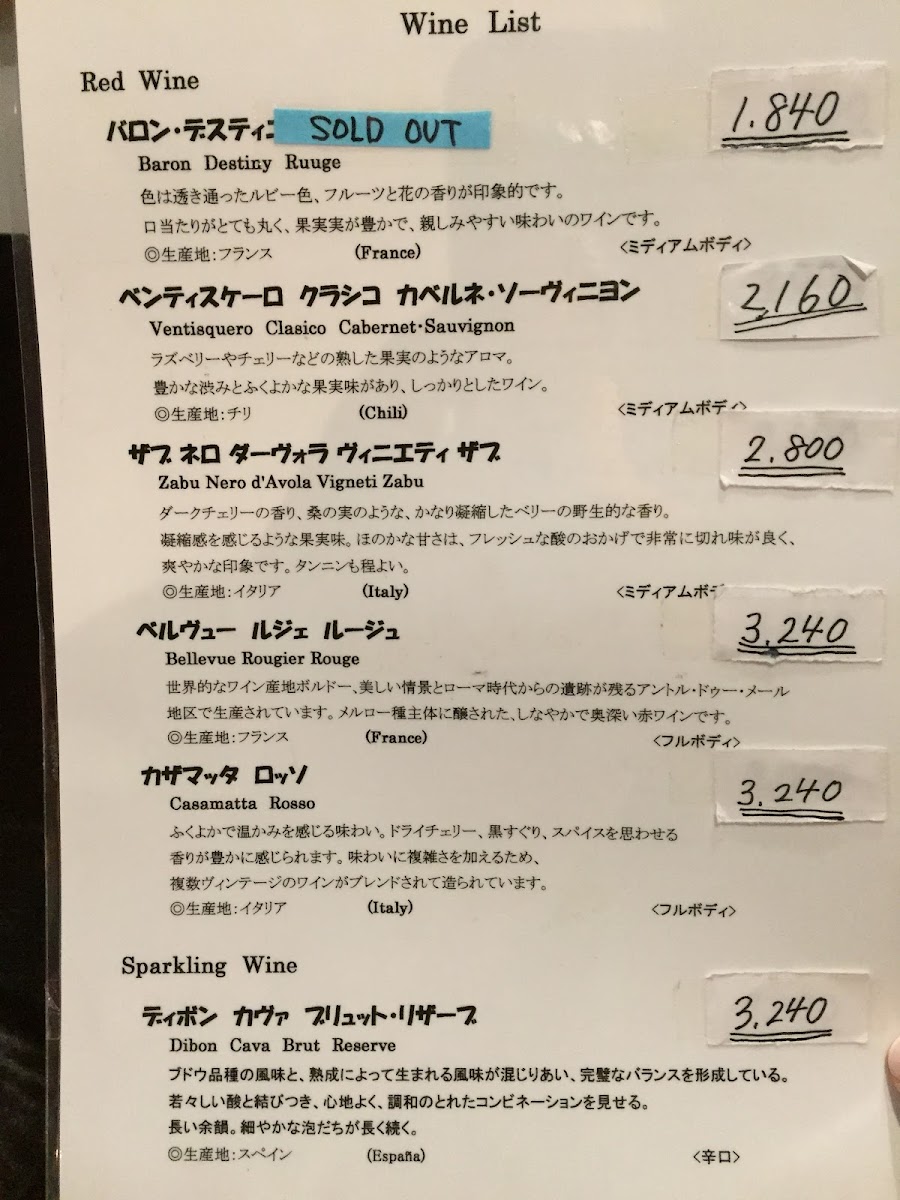 Wine List
Red Wine
バロン・デスティ
SOLD OUT
1.840
Baron Destiny Ruuge
色は透き通ったルビー色、フルーツと花の香りが印象的です。
口当たりがとても丸く、果実実が豊かで、親しみやすい味わいのワインです。
◎生産地:フランス (France) <ミディアムボディ>
ベンティスケーロ クラシコ カベルネ・ソーヴィニヨン
2,160
Ventisquero Clasico Cabernet・Sauvignon
ラズベリーやチェリーなどの熟した果実のようなアロマ。
豊かな渋みとふくよかな果実味があり、しっかりとしたワイン。
◎生産地:チリ (Chili) <ミディアムボディ>
ザブ ネロ ダーヴォラ ヴィニエティ ザブ
2.800
Zabu Nero d'Avola Vigneti Zabu
ダークチェリーの香り、桑の実のような、かなり凝縮したベリーの野生的な香り。
凝縮感を感じるような果実味。ほのかな甘さは、フレッシュな酸のおかげで非常に切れ味が良く、
爽やかな印象です。タンニンも程よい。
◎生産地:イタリア (Italy) <ミディアムボデ
ベルヴュー ルジェ ルージュ
3,240
Bellevue Rougier Rouge
世界的なワイン産地ボルドー、美しい情景とローマ時代からの遺跡が残るアントル・ドゥー・メール
地区で生産されています。メルロー種主体に醸された、しなやかで奥深い赤ワインです。
◎生産地:フランス (France) <フルボディ>
カザマッタ ロッソ
3.240
Casamatta Rosso
ふくよかで温かみを感じる味わい。ドライチェリー、黒すぐり、スパイスを思わせる
香りが豊かに感じられます。味わいに複雑さを加えるため、
複数ヴィンテージのワインがブレンドされて造られています。
◎生産地:イタリア (Italy) <フルボディ>
Sparkling Wine
ディボン カヴァ ブリュット・リザーブ
3.240
Dibon Cava Brut Reserve
ブドウ品種の風味と、熟成によって生まれる風味が混じりあい、完璧なバランスを形成している。
若々しい酸と結びつき、心地よく、調和のとれたコンビネーションを見せる。
長い余韻。細やかな泡だちが長く続く。
◎生産地:スペイン (España) <辛口>